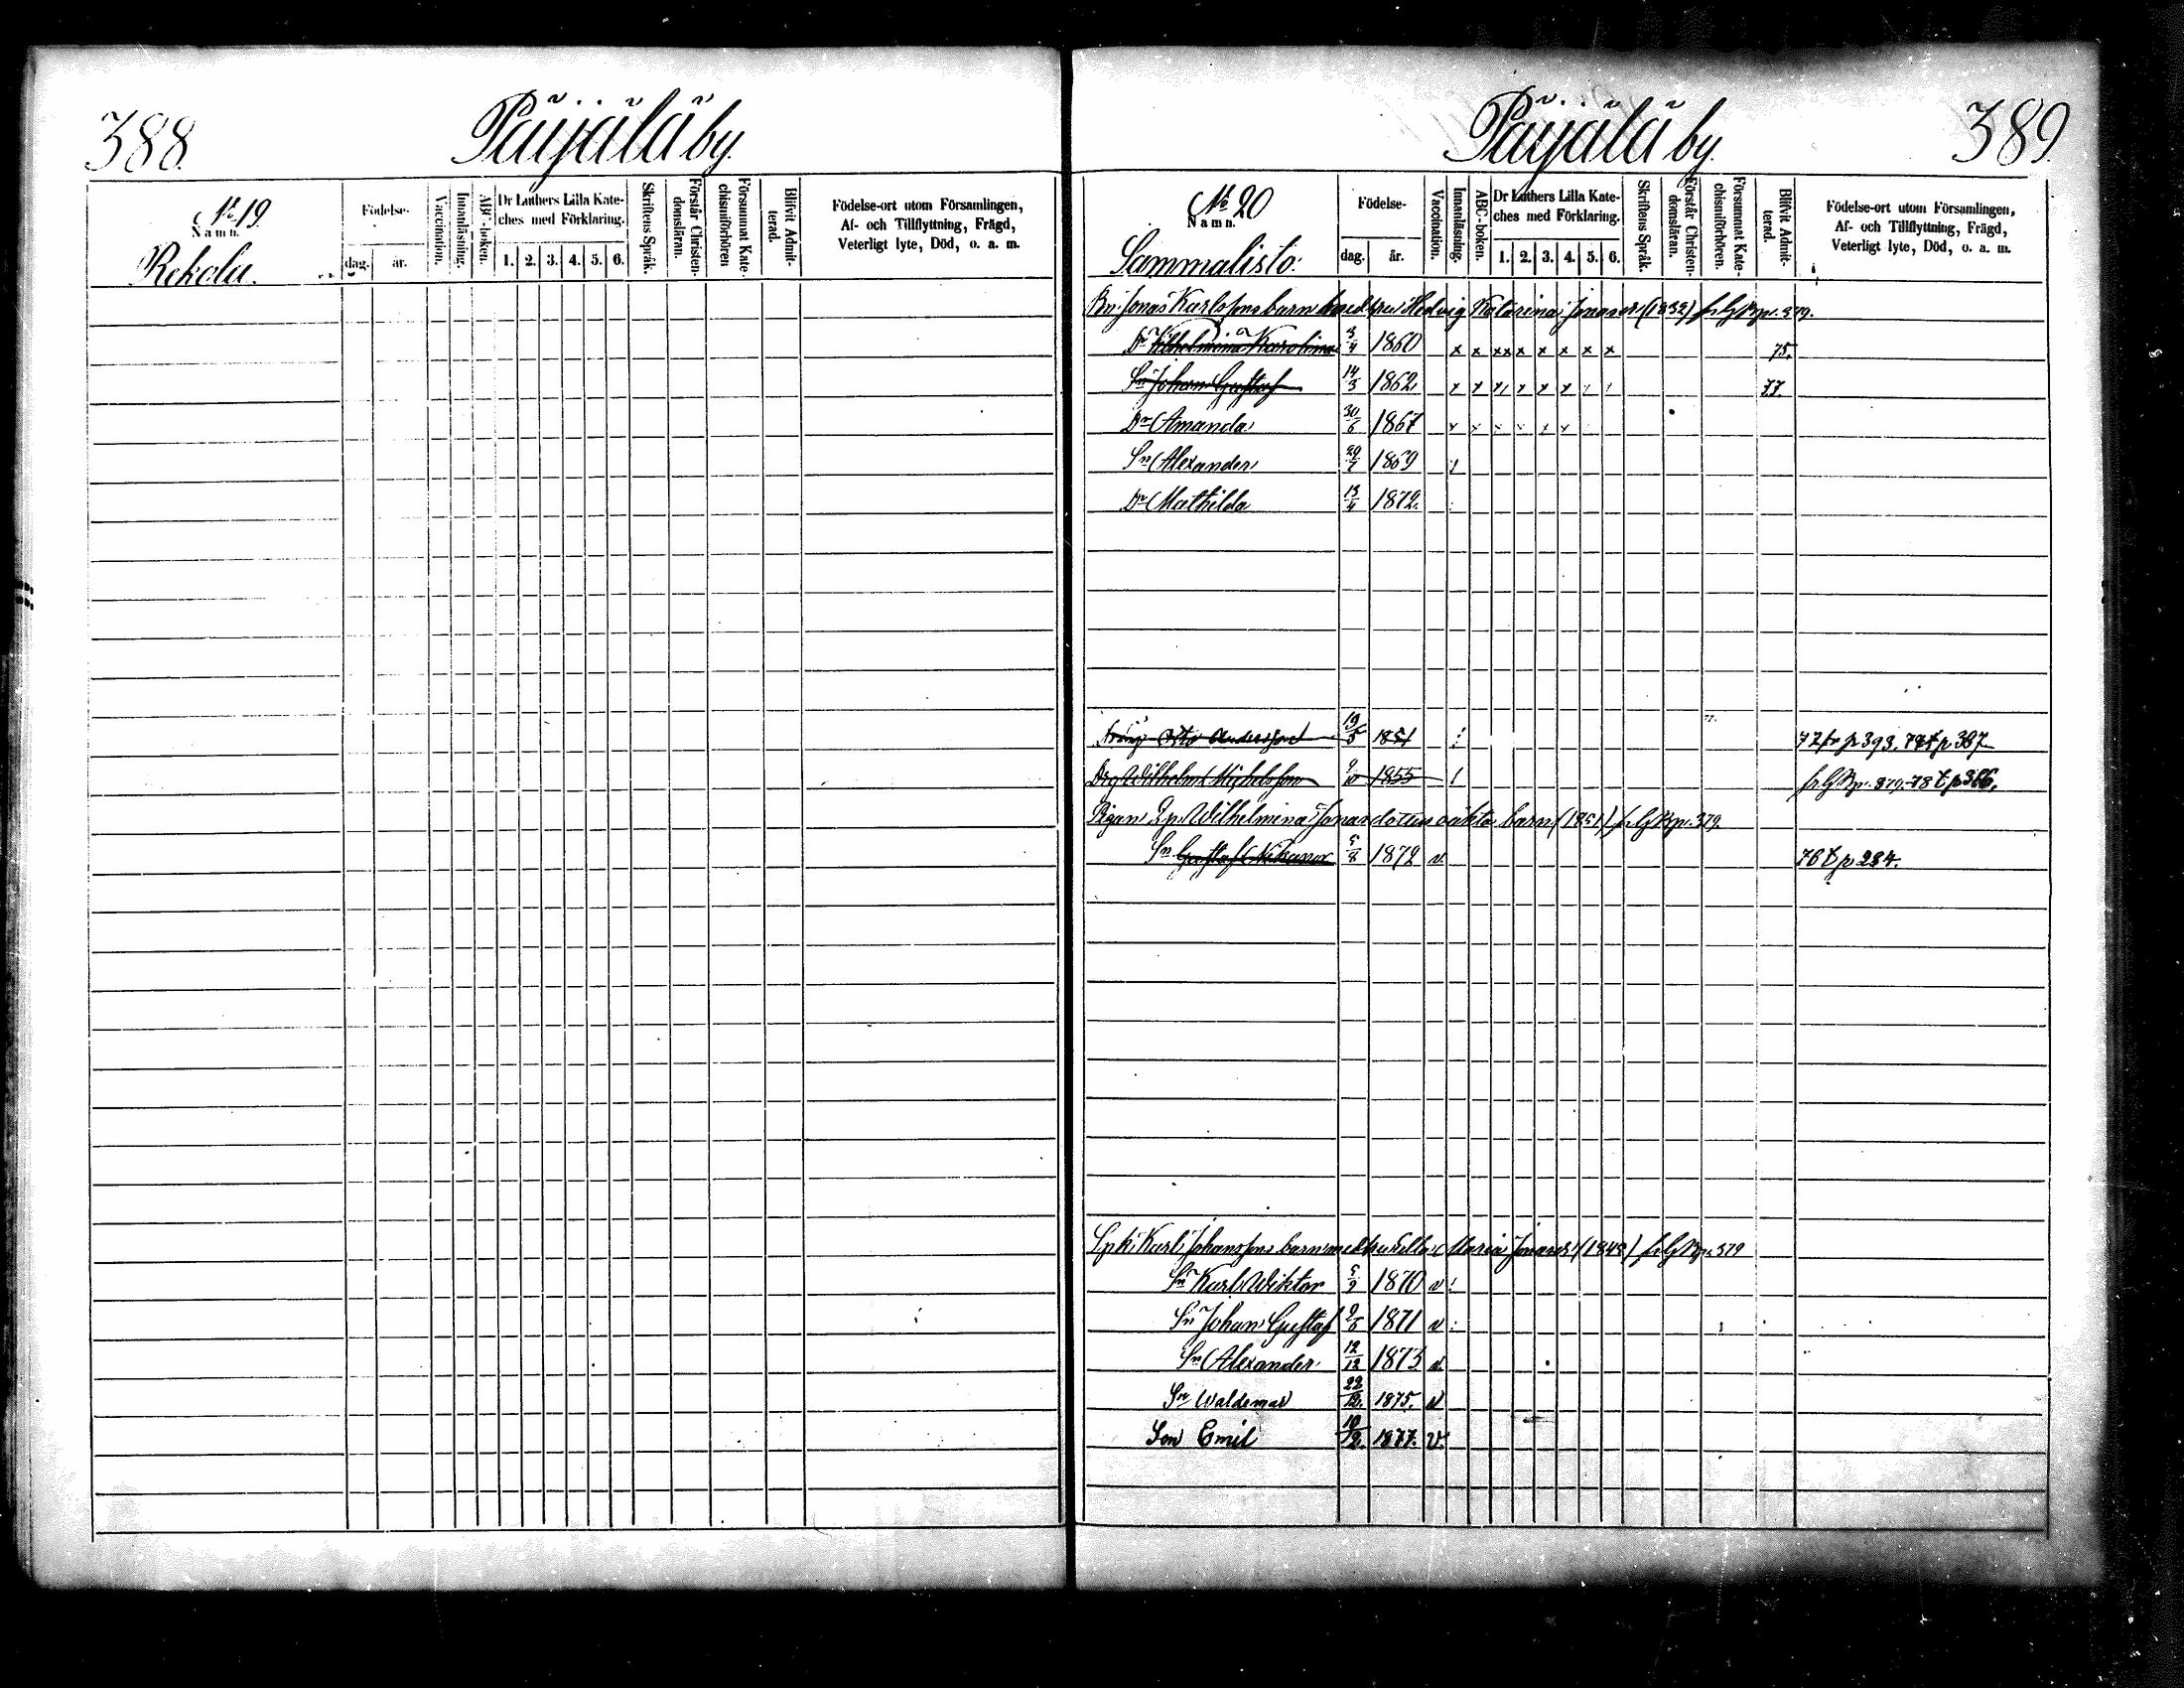 388.
Päijälä by.
No 19.
Namn.
Rekola.
Födelse-
dag. år.
Vaccination.
Innanläsning.
ABC-boken.
Dr Luthers Lilla Kate-
ches med Förklaring.
1. 2. 3. 4. 5. 6.
Skriftens Språk.
Förstår Christen-
domsläran.
Försummat Kate-
chismiförhören
Blifvit Admit-
terad.
Födelse-ort utom Församlingen,
Af- och Tillflyttning, Frägd,
Veterligt lyte, Död, o. a. m.
Päijälä by.
389.
No 20
Namn.
Sammalisto.
Födelse-
dag. år.
Vaccination.
Innanläsning.
ABC-boken.
Dr Luthers Lilla Kate-
ches med Förklaring.
1. 2. 3. 4. 5. 6.
Skriftens Språk.
Förstår Christen-
domsläran.
Försummat Kate-
chismiförhören.
Blifvit Admit-
terad.
Födelse-ort utom Församlingen,
Af- och Tillflyttning, Frägd,
Veterligt lyte, Död, o. a. m.
Bn. Jonas Karlssons barn med Hedvig Katarina Jonasdr (1832) p. 379.
Dr Vilhelmina Karolina 3/4 1860 x x x x x x x x x 75.
Sn Johan Gustaf 14/3 1862 x x x x x x 77.
Dr Amanda 30/6 1867 x x x x x x
Sn Alexander 29/7 1869
Dr Mathilda 13/4 1872.
Otto Andersson 19/5 1851 72 fr p 393. p 387
Drg Wilhelm Michelsson 9/10 1855 p. 379. 78 t p 386.
Pigan Wilhelmina Jonasdotters oäkta barn (1851) p. 379.
Sn Gustaf Nikanor 5/8 1872 v. 76 t p 284.
Karl Johanssons barn med Maria Jonasdr (1848) p. 379
Sn Karl Wiktor 5/9 1870 v
Sn Johan Gustaf 1871 v
Sn Alexander 12/12 1873 v.
Sn Waldemar 22/12. 1875. v
Son Emil 10/12. 1877. v.